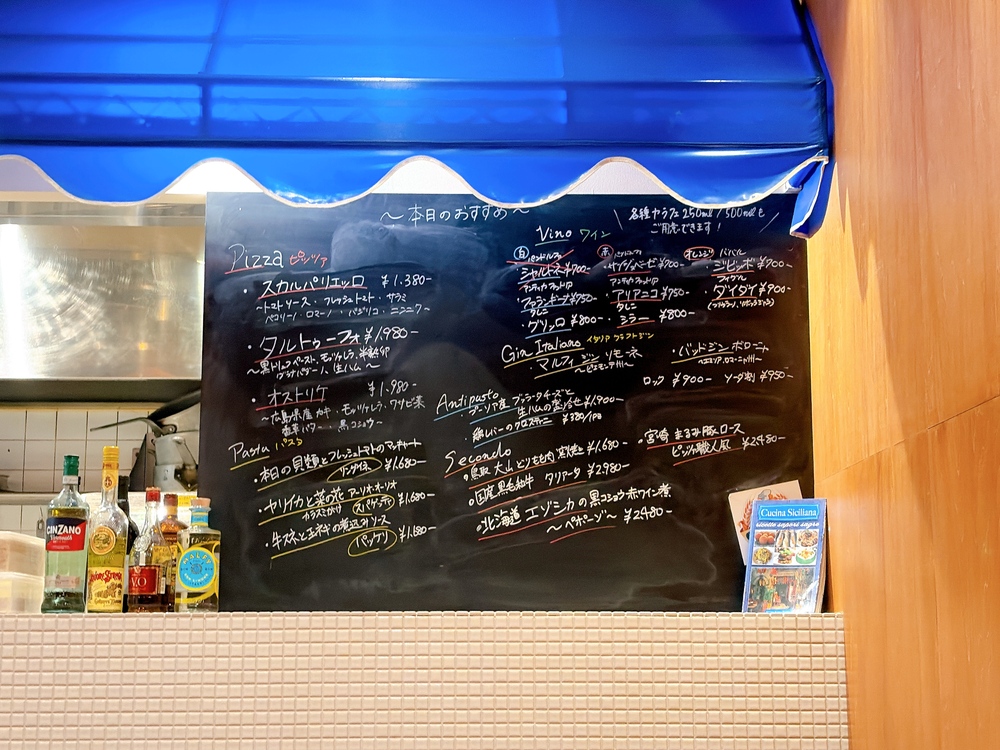 〜本日のおすすめ〜
Pizza ピッツァ
・スカルパリエッロ ¥1.380-
〜トマトソース・フレッシュトマト・サラミ
ペコリーノ・ロマーノ・バジリコ・ニンニク〜
・タルトゥーフォ ¥1,980-
〜黒トリュフペースト、モッツァレラ、半熟卵
グラナパダーノ、生ハム〜
・オストリケ ¥1.980-
〜広島県産カキ・モッツァレラ、ワサビ菜
・黒コショウ〜
Pasta パスタ
・本日の貝類とフレッシュトマトのアッチャート
リングイネ ¥1,680-
・ヤリイカと菜の花 アーリオ・オーリオ
カラスミがけ スパゲッティ ¥1,680-
・牛スネと玉ネギの煮込みソース
パッケリ ¥1,680-
各種カラフェ 250ml / 500mlを
ご用意できます！
Vino ワイン
白
・シャルドネ ¥700-
アンティカフォットリア
・ファランギーナ ¥750-
タレニ
・グリッロ ¥800-
赤
・サンジョベーゼ ¥700-
アンティカフォットリア
・アリアニコ ¥750-
タレニ
・シラー ¥800-
オレンジ
・ジビッボ ¥700-
・ダイダイ ¥900-
Gin Italiano イタリア クラフトジン
・マルフィ ジン リモーネ
〜ピエモンテ州〜
・バッドジン ボローニャ
〜エミリア、ロマーニャ州〜
ロック ¥900- ソーダ割 ¥950-
Antipasto
・プーリア産 ブッラータチーズと
生ハムの盛合せ ¥1,900-
・鶏レバーのクロスティーニ ¥380/1P
Secondo
・鳥取 大山どりもも肉 窯焼き ¥1,680-
・国産黒毛和牛 タリアータ ¥2,980-
・北海道 エゾシカの黒コショウ赤ワイン煮
〜ペポーゾ〜 ¥2,480-
・宮崎 まるみ豚ロース
ピッツァ職人風 ¥2,480-
CINZANO
Vermouth
V.O
MALFY
Cucina Siciliana
ricette sapori sagre